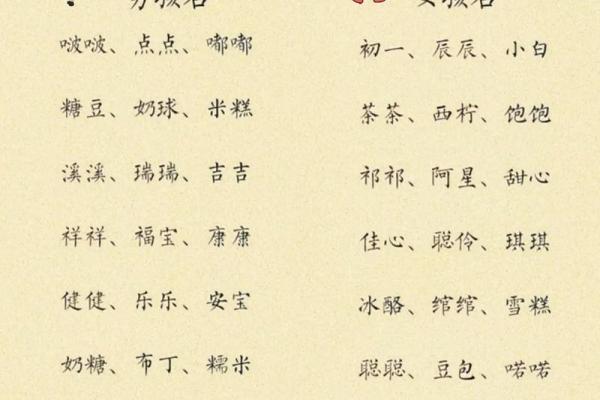 男孩名
啵啵、点点、嘟嘟
糖豆、奶球、米糕
溪溪、瑞瑞、吉吉
祥祥、福宝、康康
健健、乐乐、安宝
奶糖、布丁、糯米
女孩名
初一、辰辰、小白
茶茶、西柠、饱饱
祁祁、阿星、甜心
佳心、聪伶、琪琪
冰酪、绾绾、雪糕
聪聪、豆包、喏喏